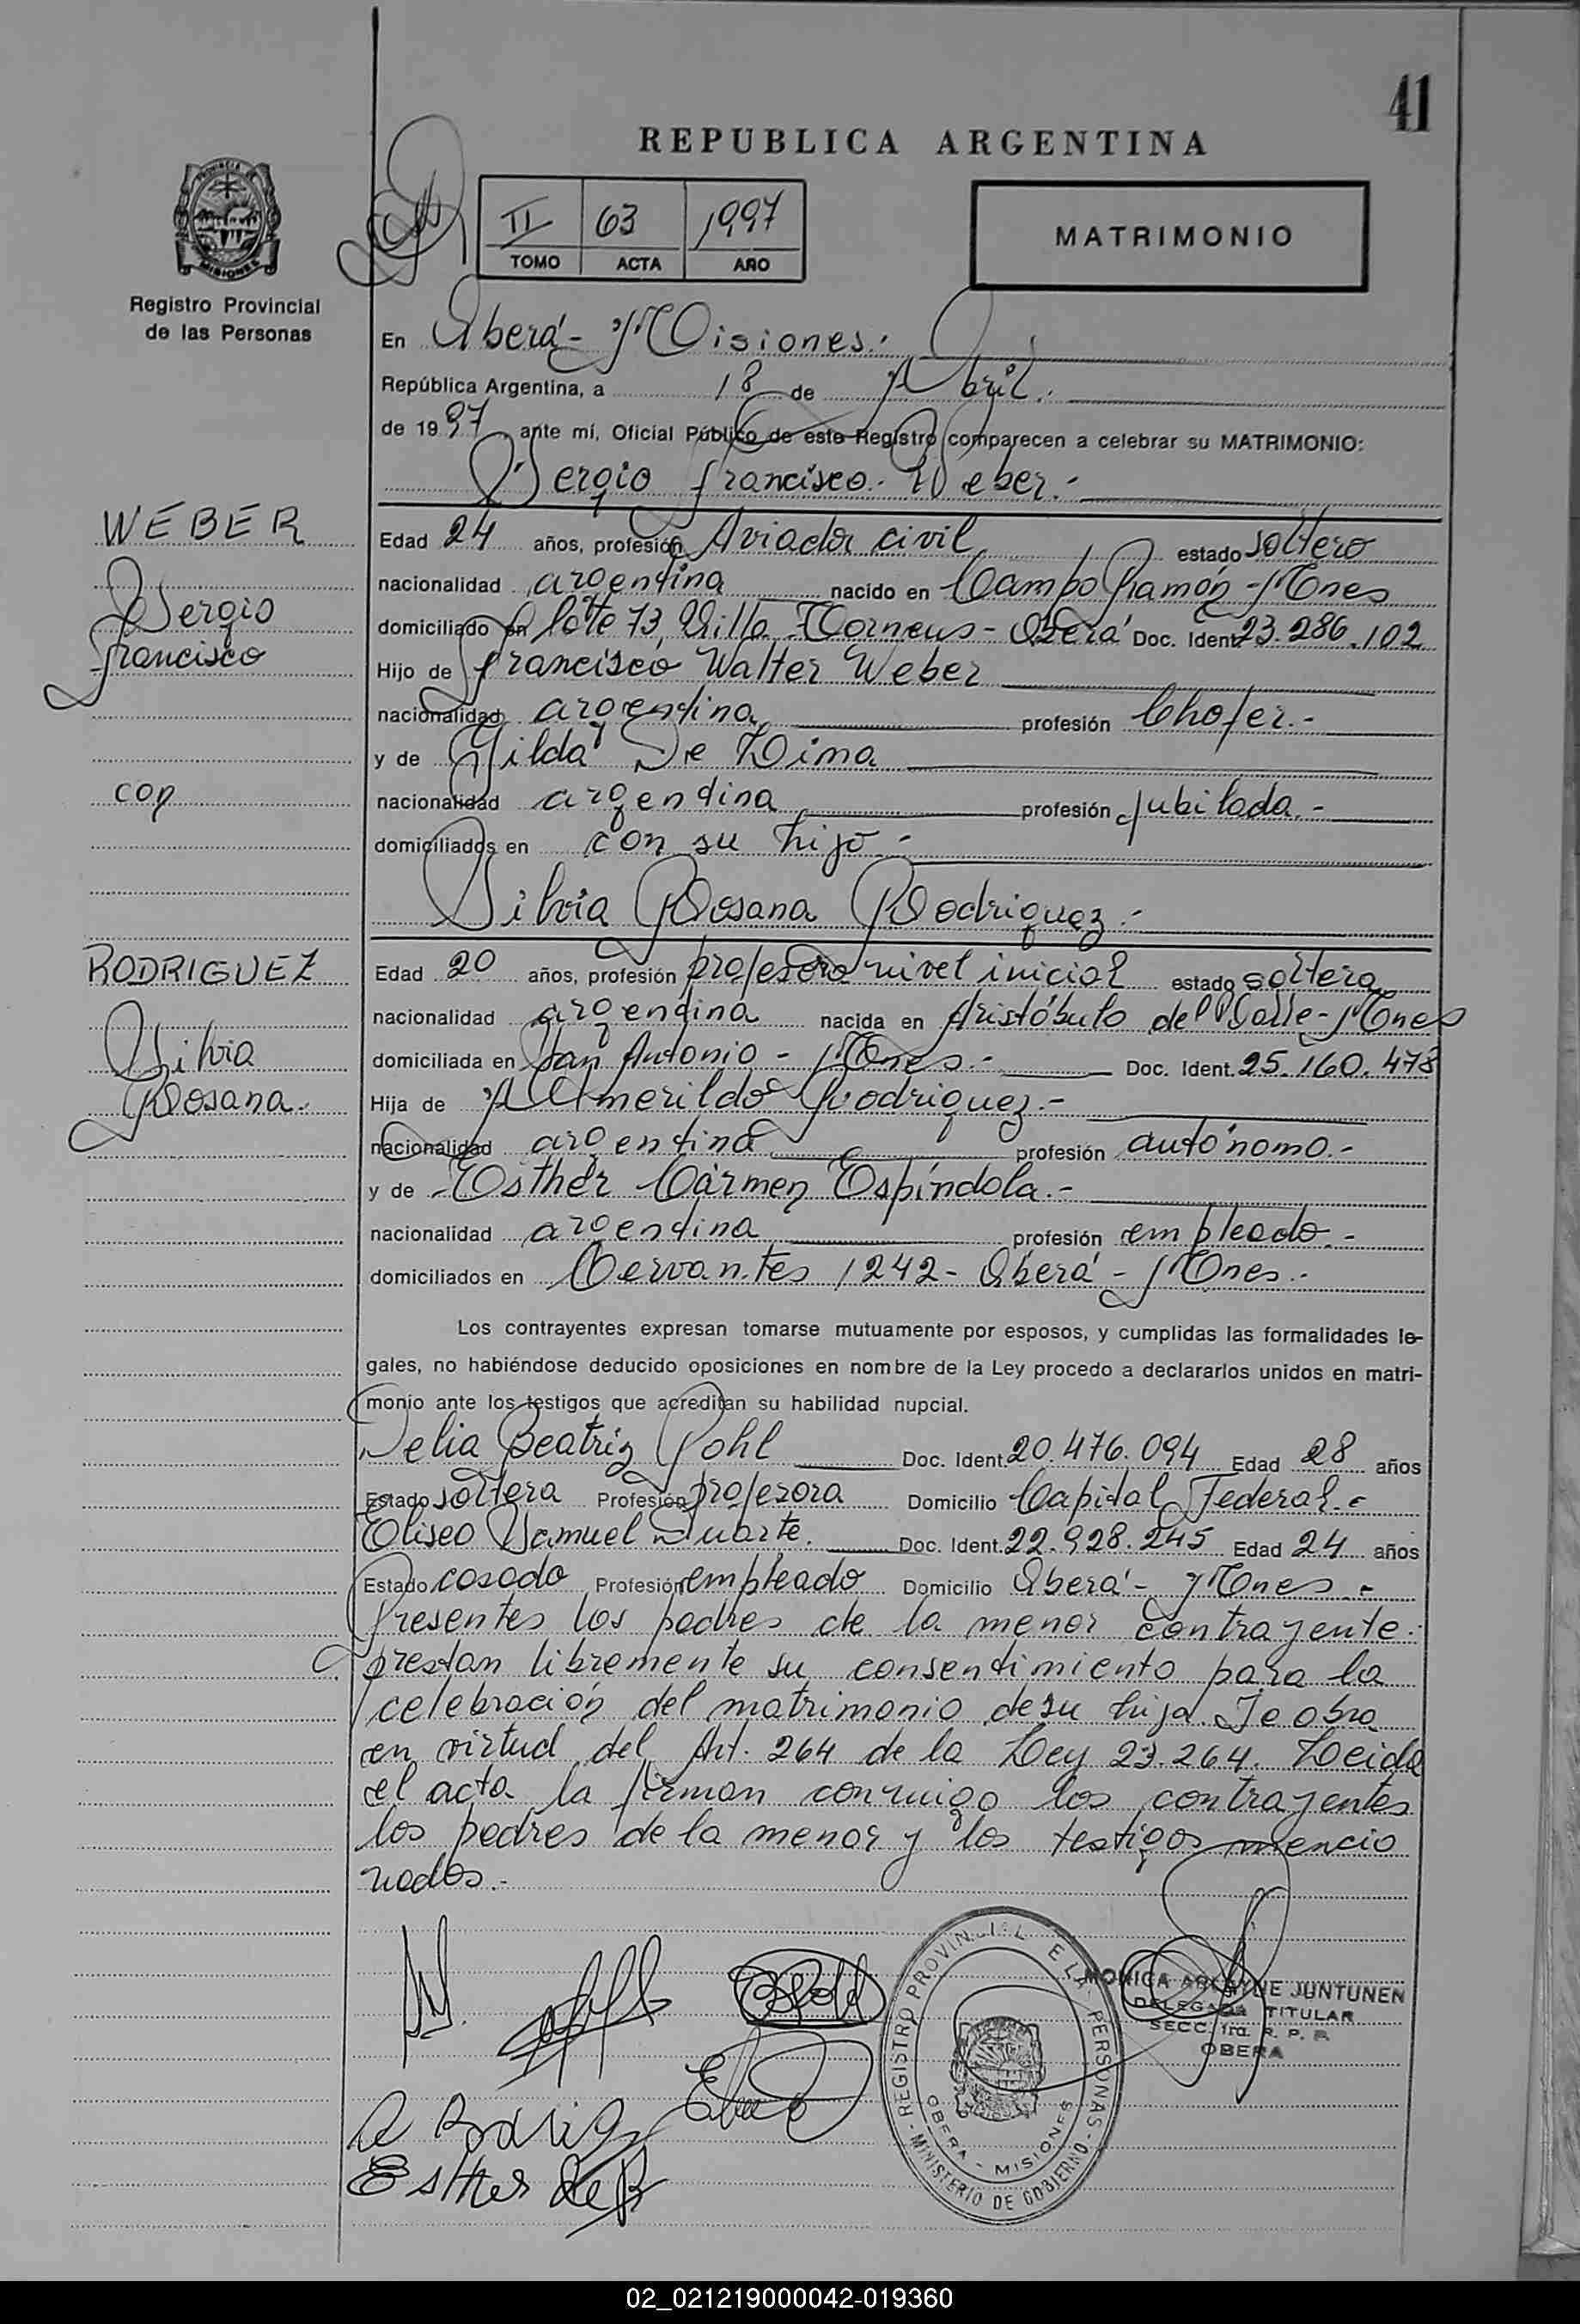 41
REPUBLICA ARGENTINA
PROVINCIA DE
MISIONES
Registro Provincial
de las Personas
II 63 1997
TOMO ACTA AÑO
MATRIMONIO
En Oberá - Misiones.-
República Argentina, a 18 de Abril.-
de 1997, ante mí, Oficial Público de este Registro comparecen a celebrar su MATRIMONIO:
Sergio Francisco Weber.-
WEBER
Sergio
Francisco
con
RODRIGUEZ
Silvia
Rosana.-
Edad 24 años, profesión Aviador civil estado soltero
nacionalidad argentina nacido en Campo Ramón - Mnes
domiciliado en lote 73, Villa - Oberá Doc. Ident. 23.286.102
Hijo de Francisco Walter Weber
nacionalidad argentina profesión Chofer.-
y de Gilda De Lima
nacionalidad argentina profesión jubilada.-
domiciliados en con su hijo.-
Silvia Rosana Rodriguez.-
Edad 20 años, profesión profesora nivel inicial estado soltera
nacionalidad argentina nacida en Aristóbulo del Valle - Mnes
domiciliada en San Antonio - Mnes.- Doc. Ident. 25.160.478
Hija de Almerildo Rodriguez.-
nacionalidad argentina profesión autónomo.-
y de Esther Cármen Espíndola.-
nacionalidad argentina profesión empleada.-
domiciliados en Cervantes 1242 - Oberá - Mnes.-
Los contrayentes expresan tomarse mutuamente por esposos, y cumplidas las formalidades le-
gales, no habiéndose deducido oposiciones en nombre de la Ley procedo a declararlos unidos en matri-
monio ante los testigos que acreditan su habilidad nupcial.
Delia Beatriz Pohl Doc. Ident. 20.476.094 Edad 28 años
Estado soltera Profesión profesora Domicilio Capital Federal.-
Eliseo Samuel Duarte. Doc. Ident. 22.928.245 Edad 24 años
Estado casado Profesión empleado Domicilio Oberá - Mnes.-
Presentes los padres de la menor contrayente.
prestan libremente su consentimiento para la
celebración del matrimonio de su hija. Se obra
en virtud del Art. 264 de la Ley 23.264. Leida
el acta la firman conmigo los contrayentes
los padres de la menor y los testigos mencio
nados.-
REGISTRO PROVINCIAL DE LAS PERSONAS
MINISTERIO DE GOBIERNO
OBERA - MISIONES
MONICA JUNTUNEN
DELEGADA TITULAR
SECC. 1ra. R. P. P.
OBERA
Esther de R
02_021219000042-019360